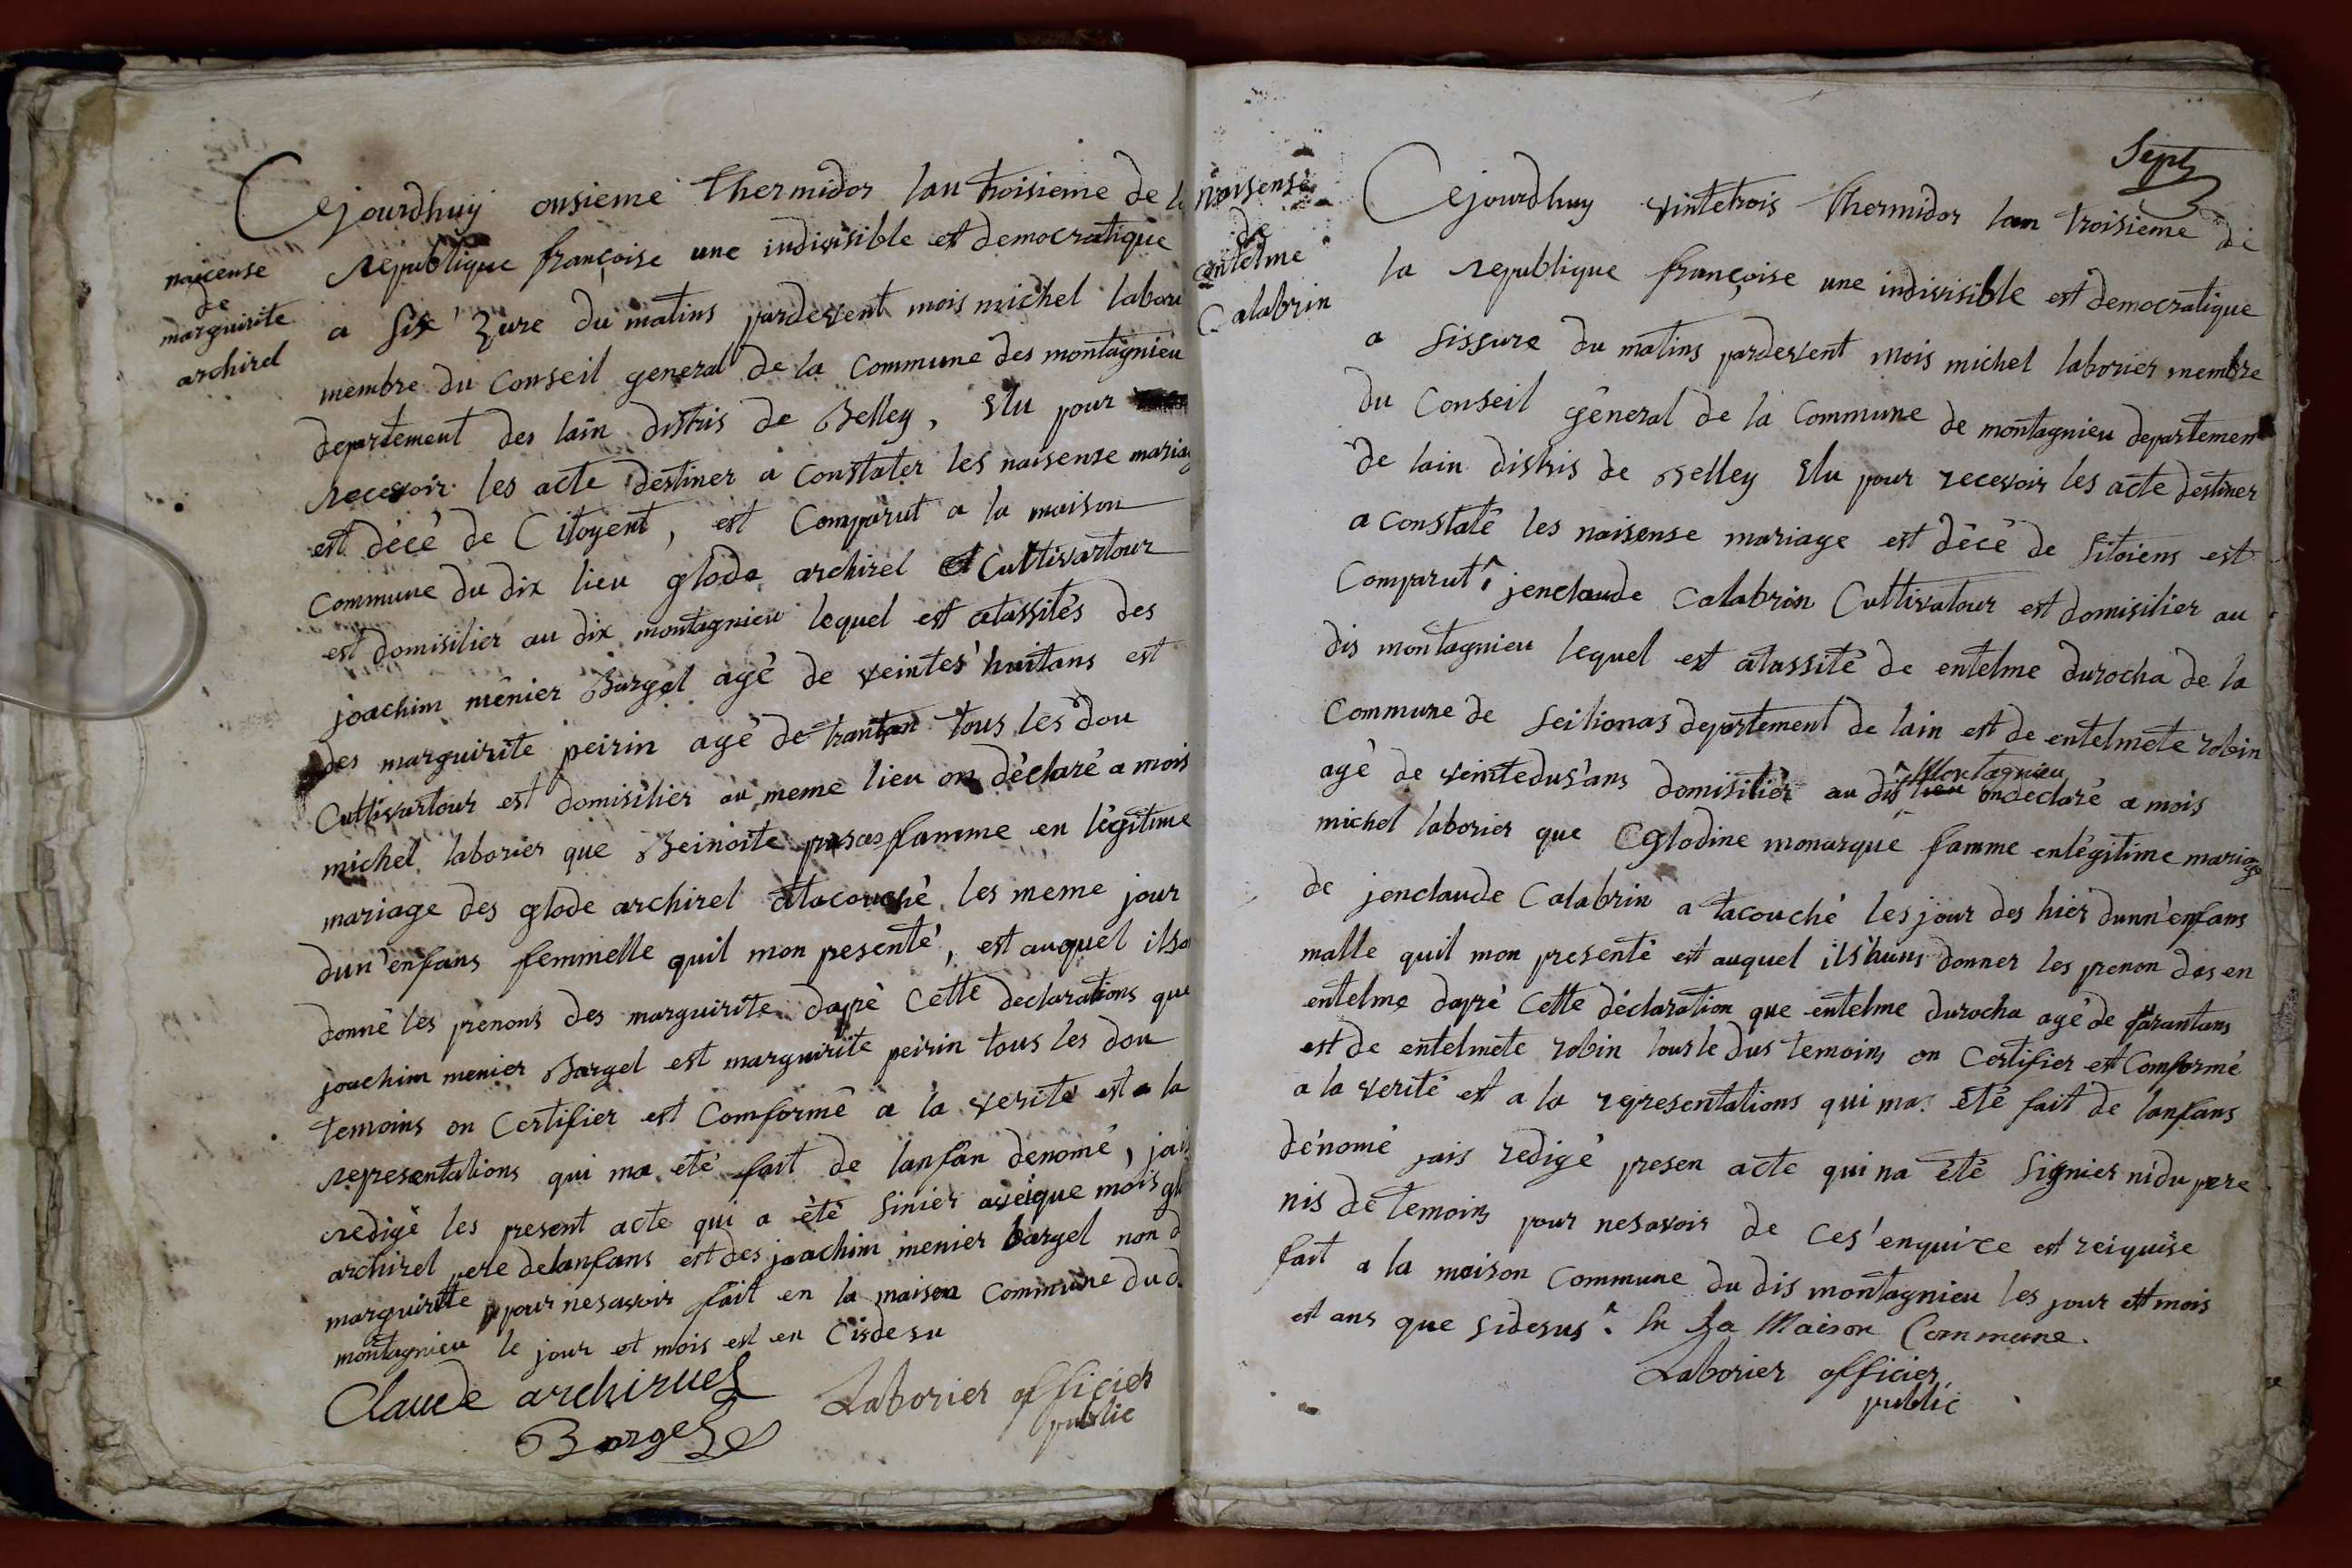 naicense
de
marguirite
archirel
Cejourdhuy onsieme thermidor lan troisieme de la
republique françoise une indivisible est democratique
a six' zure du matins pardevent mois michel labori
membre du Conseil general de la Commune des montagnieu
departement des lain distris de Belley, Elu pour
recevoir les acte destiner a Constater les naisense mariag
est décé de Citoyent, est Comparut a la maison
Commune du dix lieu glode archirel et Cultivartour
est domisilier au dix montagnieu lequel est atassités des
joachim ménier Bargel agé de veintes'huitans est
des marguirite peirin agé de trantan tous les dou
Cultivartour est domisilier au meme lieu on déclaré a mois
michel laborier que Beinoite famme en légitime
mariage des glode archirel atacouché les meme jour
dun'enfans femmelle quil mon presenté, est auquel ilson
donné les prenons des marguirite dapré Cette declarations que
joachim menier Bargel est marguirite peirin tous les dou
temoins on Certifier est Comformé a la verité est a la
representations qui ma été fait de lanfan denomé, jais
redigé les present acte qui a été sinier aveique mois glo
archirel pere delanfans est des joachim menier bargel non d
marguirite pour nesavoir fait en la maison Commune du d
montagnieu le jour et mois est en Cisdesu
Claude archiruel
Bargel
Laborier officier
public
Sept
naisense
de
entelme
Calabrin
Cejourdhuy vintetrois thermidor lan troisieme de
la republique françoise une indivisible est democratique
a sissure du matins pardevent mois michel laborier membre
du Conseil géneral de la Commune de montagnieu departement
de lain distris de Belley Elu pour recevoir les acte destiner
a constaté les naisense mariage est décé de sitoiens est
Comparut jenclaude Calabrin Cultivatour est domisilier au
dis montagnieu lequel est atassité de entelme durocha de la
Commune de seilionas departement de lain est de entelmete robin
agé de veintedus'ans domisilier au dis lieu ondeclaré a mois
Montagnieu
michel laborier que Cglodine monarque famme enlégitime mariage
de jenclaude Calabrin a tacouché les jour des hier dunn'enfans
malle quil mon presenté est auquel ils'huns donner les prenon des en
entelme dapré Cette déclaration que entelme durocha agé de qarantans
est de entelmete robin tous le dus temoins on Certifier est Comformé
a la verité est a la representations qui mas été fait de lanfans
dénomé jais redigé presen acte qui na été signier nidu pere
nis de temoins pour nesavoir de ces'enquice est reiquise
fait a la maison Commune du dis montagnieu les jour est mois
est ans que sidesus. En La Maison Commune.
Laborier officier
public